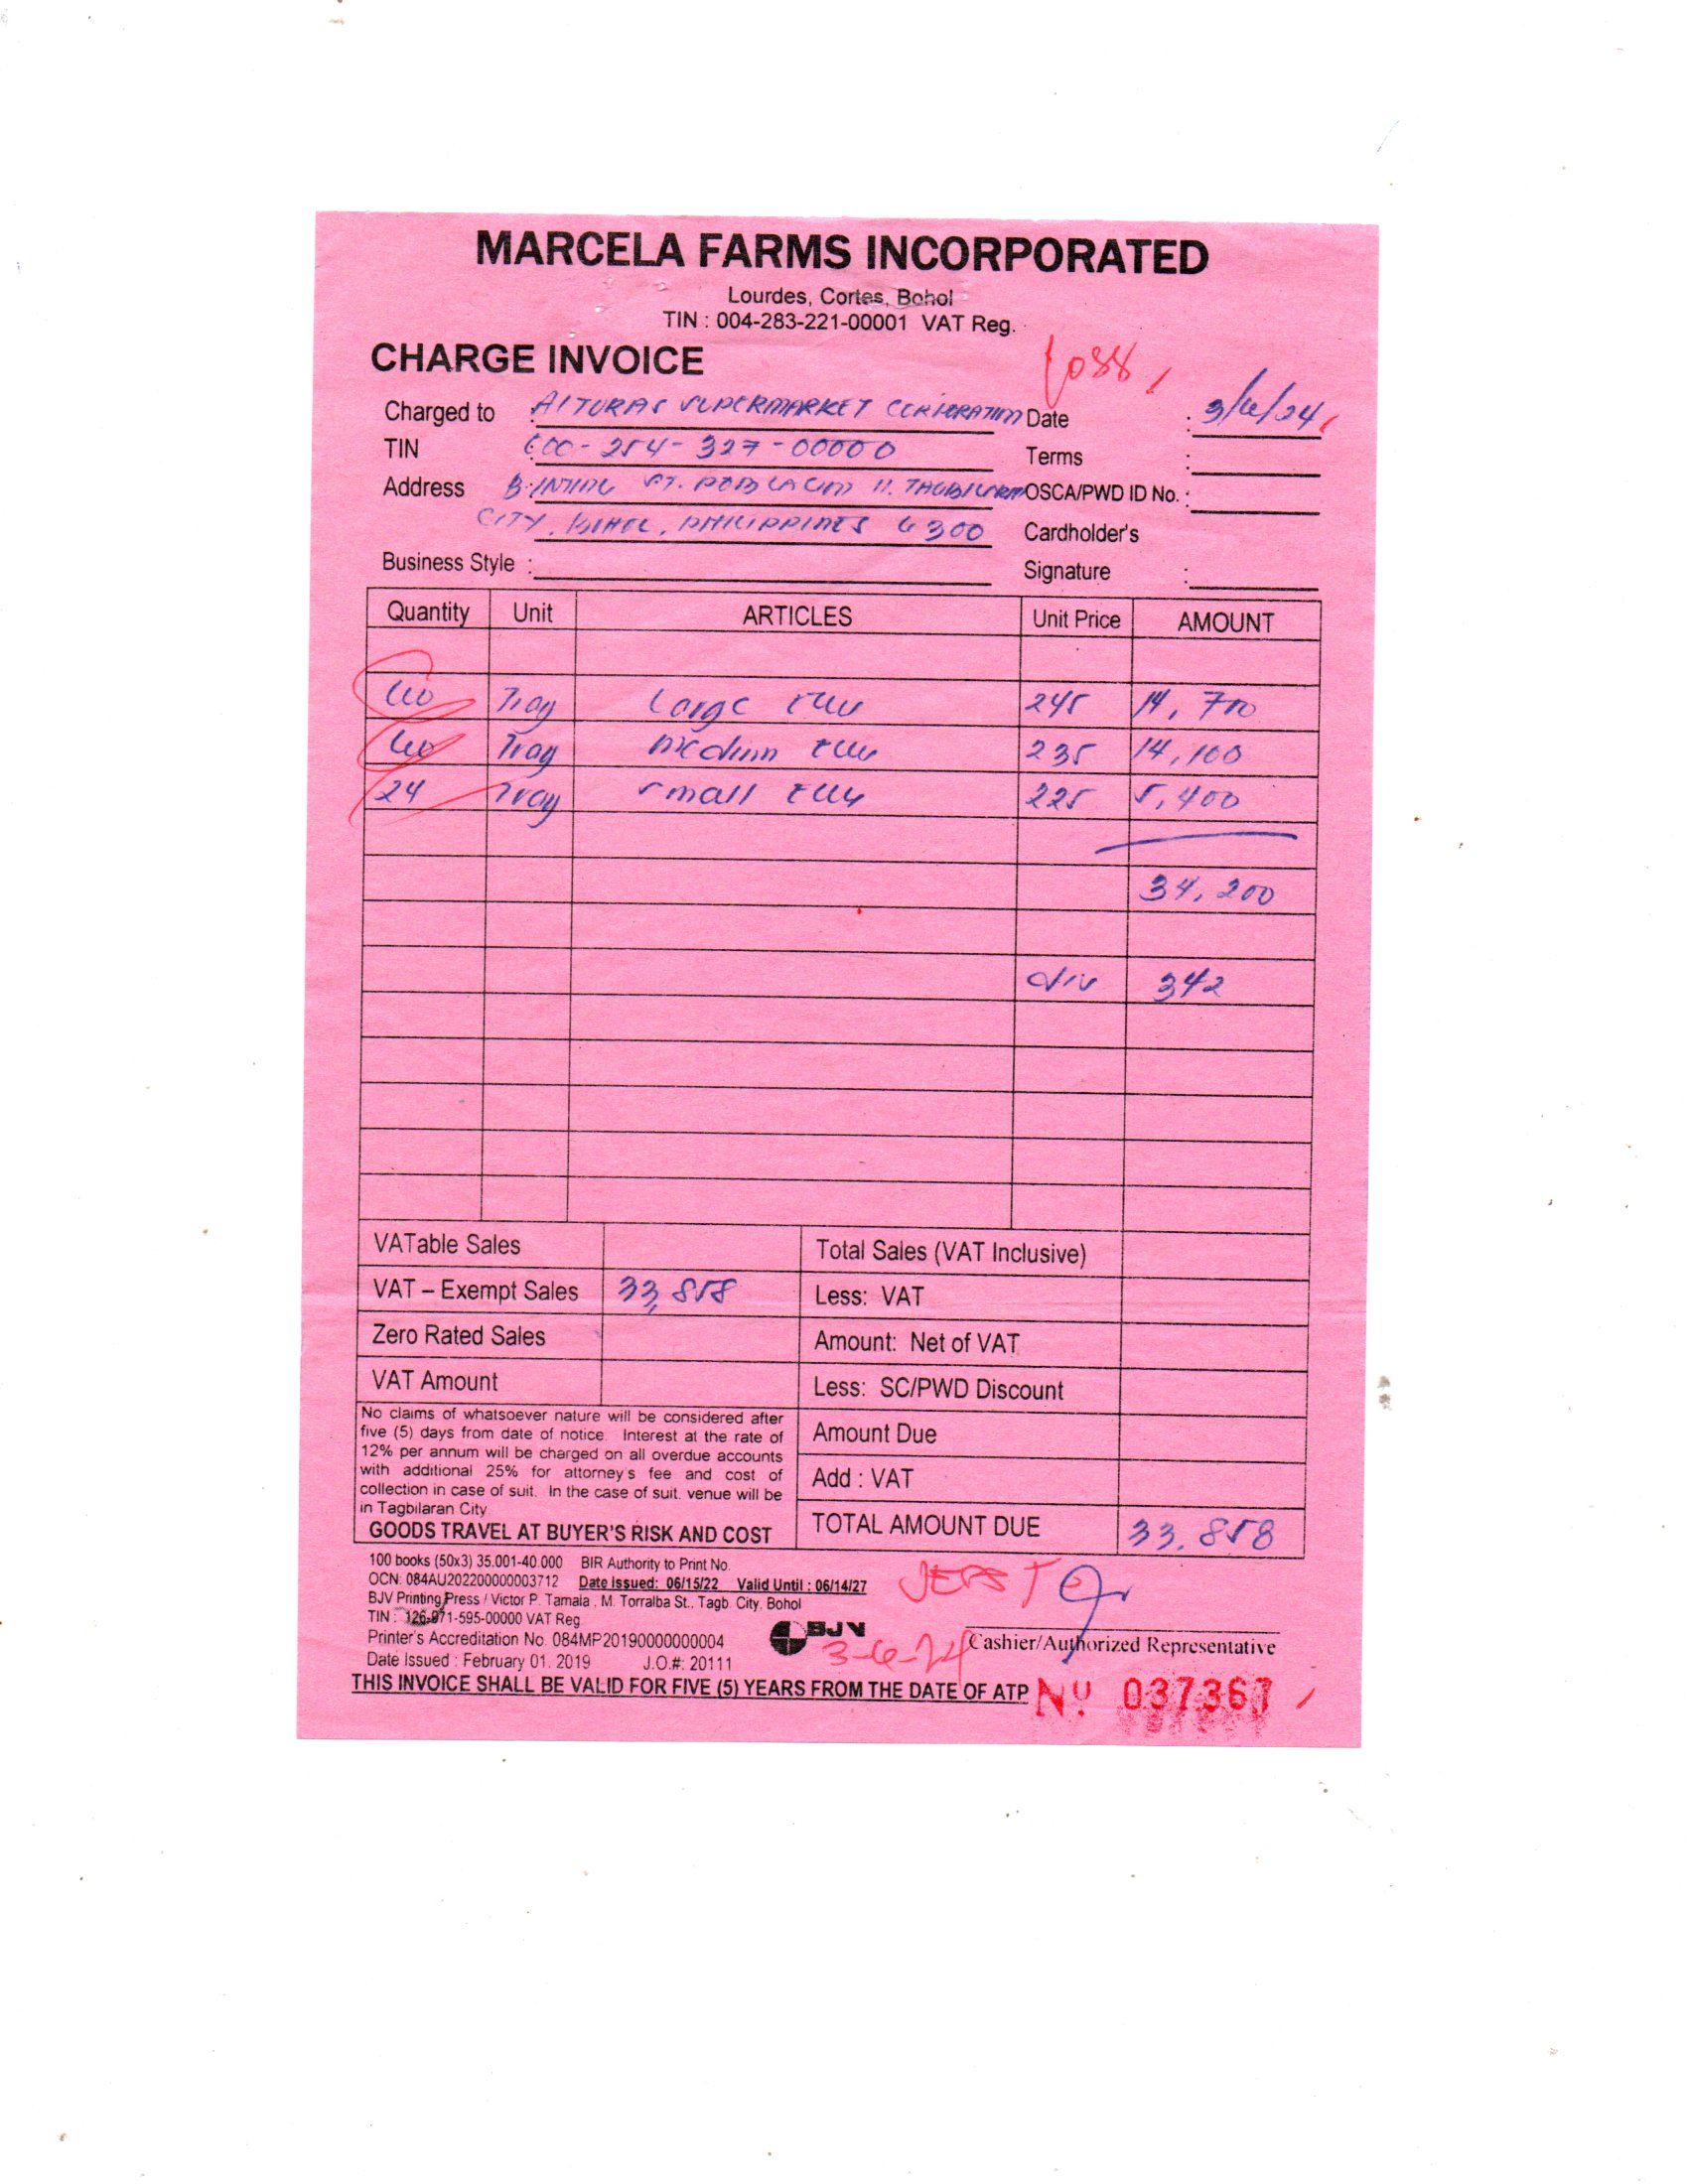 MARCELA FARMS INCORPORATED
Lourdes, Cortes, Bohol
TIN : 004-283-221-00001 VAT Reg.
CHARGE INVOICE
1088
Charged to : ALTURAS SUPERMARKET CORPORATION Date : 3/6/24
TIN : 000-254-327-00000 Terms :
Address : B. INTING ST. POBLACION II. TAGBILARAN OSCA/PWD ID No. :
CITY, BOHOL, PHILIPPINES 6300 Cardholder's
Business Style : Signature :
Quantity Unit ARTICLES Unit Price AMOUNT
60 Tray Large egg 245 14,700
60 Tray medium egg 235 14,100
24 Tray small egg 225 5,400
34,200
dis 342
VATable Sales Total Sales (VAT Inclusive)
VAT – Exempt Sales 33,858 Less: VAT
Zero Rated Sales Amount: Net of VAT
VAT Amount Less: SC/PWD Discount
No claims of whatsoever nature will be considered after
five (5) days from date of notice. Interest at the rate of
12% per annum will be charged on all overdue accounts
with additional 25% for attorney's fee and cost of
collection in case of suit. In the case of suit. venue will be
in Tagbilaran City.
GOODS TRAVEL AT BUYER'S RISK AND COST
Amount Due
Add : VAT
TOTAL AMOUNT DUE 33,858
100 books (50x3) 35.001-40.000 BIR Authority to Print No.
OCN: 084AU202200000003712 Date Issued: 06/15/22 Valid Until : 06/14/27
BJV Printing Press / Victor P. Tamala , M. Torralba St., Tagb. City. Bohol
TIN : 126-971-595-00000 VAT Reg
Printer's Accreditation No. 084MP20190000000004
Date Issued : February 01. 2019 J.O.#: 20111
BJV
3-6-24
Cashier/Authorized Representative
THIS INVOICE SHALL BE VALID FOR FIVE (5) YEARS FROM THE DATE OF ATP
Nº 037367